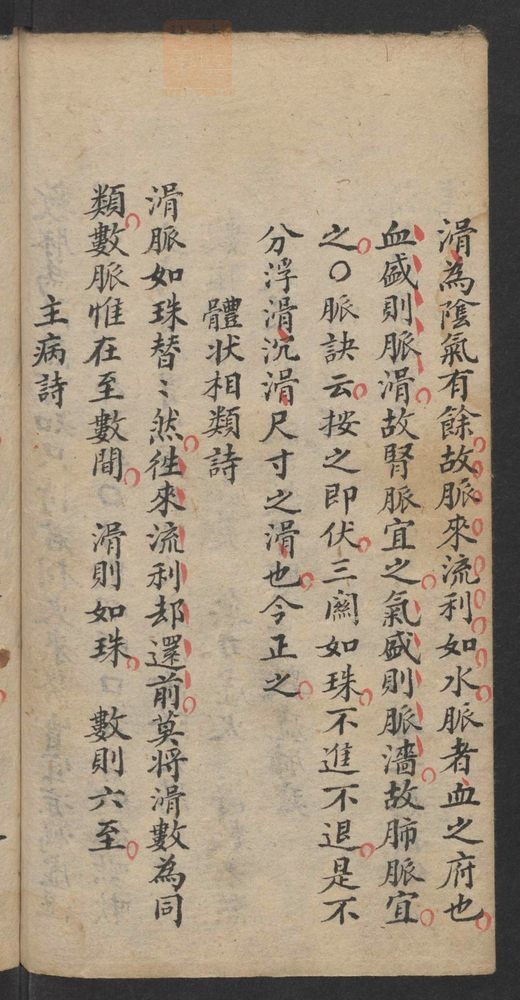 滑為陰氣有餘故脈來流利如水脈者血之府也
血盛則脈滑故腎脈宜之氣盛則脈濇故肺脈宜
之○脈訣云按之即伏三關如珠不進不退是不
分浮滑沉滑尺寸之滑也今正之
體狀相類詩
滑脈如珠替〻然徃來流利却還前莫將滑數為同
類數脈惟在至數間　滑則如珠　數則六至
主病詩